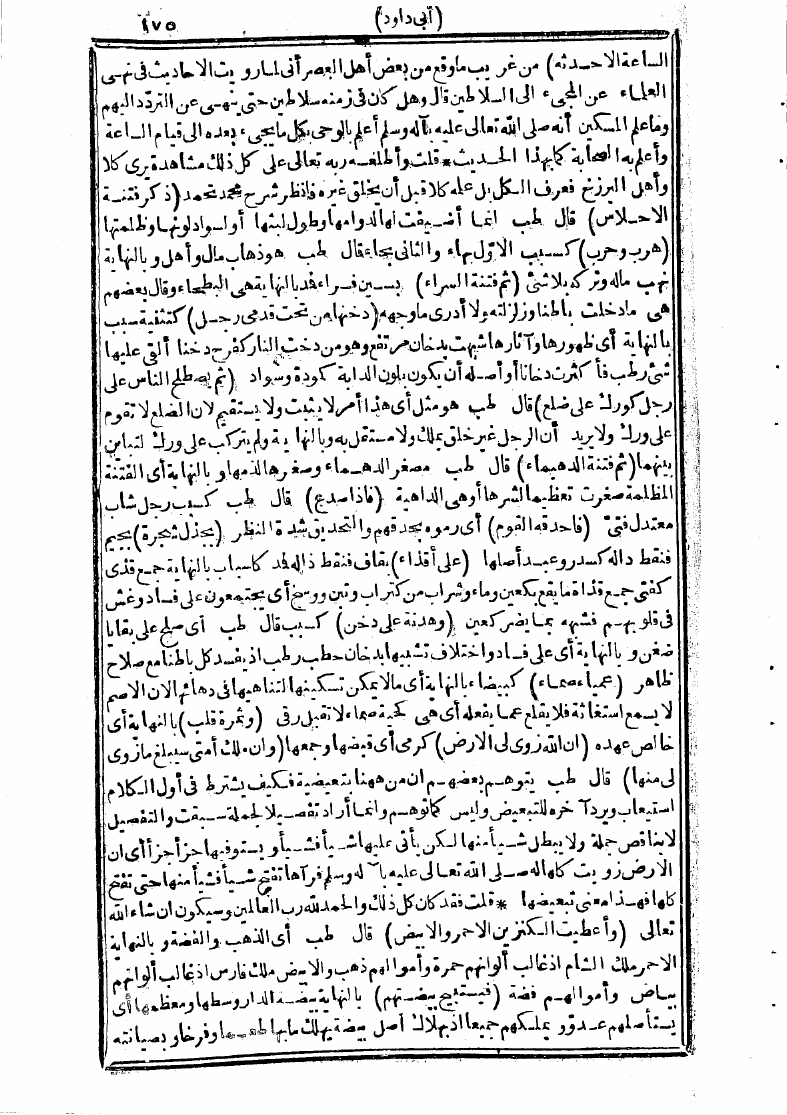 (أبى داود) ١٧٥
الساعة الا حدثه) من غريب ما وقع من بعض أهل العصر أنى لما رويت الاحاديث فى نهى
العلماء عن المجىء الى السلاطين قال وهل كان فى زمنه سلاطين حتى ينهى عن التردد اليهم
وما علم المسكين أنه صلى الله تعالى عليه بآله وسلم أعلم بالوحى بكل ما يجىء بعده الى قيام الساعة
وأعلم به الصحابة كما بهذا الحديث * قلت وأطلعه ربه تعالى على كل ذلك مشاهدة يرى كلا
وأهل البرزخ فعرف الكل بل علمه كلا قبل أن يخلق غيره فانظر شرح محمد محمد (ذكر فتنة
الاحلاس) قال طب انما أضيفت لها لدوامها وطول لبثها أو لسواد لونها وظلمتها
(هرب وحرب) كسبب الاوّل بهاء والثانى بحاء قال طب هو ذهاب مال وأهل وبالنهاية
نهب ماله وتركه بلا شئ (ثم فتنة السراء) بسين فراء فمد بالنهاية هى البطحاء وقال بعضهم
هى ما دخلت باطنا وزلزلته ولا أدرى ما وجهه (دخنها من تحت قدمى رجل) كتثنية سبب
بالنهاية أى ظهورها وآثارها شبهت بدخان مرتفع وهو من دخنت النار كفرح دخنا ألقى عليها
شئ رطب فأكثرت دخانا أو أصله أن يكون بلون الدابة كودة وسواد (ثم يصطلح الناس على
رجل كورك على ضلع) قال طب هو مثل أى هذا أمر لا يثبت ولا يستقيم لان الضلع لا تقوم
على ورك ولا يريد أن الرجل غير خلق بملك ولا مستقل به وبالنهاية ولم يتركب على ورك لتباين
بينهما (ثم فتنة الدهيماء) قال طب مصغر الدهماء وصغرها لذمها وبالنهاية أى الفتنة
المظلمة صغرت تعظيما لشرها أو هى الداهية (فاذا صدع) قال طب كسبب رجل شاب
معتدل فتىّ (فاحدقه القوم) أى رموه بحدقهم والتحديق شدة النظر (بجذل شجرة) بجيم
فنقط داله كسدر وعبد أصلها (على أقذاء) بقاف فنقط ذاله لمد كاسباب بالنهاية جمع قذى
كفتى جمع قذاة ما يقع بكعين وماء وشراب من كتراب وتبن ووسخ أى يجتمعون على فساد وغش
فى قلوبهم فشبهه بما يضر كعين (وهدنة على دخن) كسبب قال طب أى صلح على بقايا
ضغن وبالنهاية أى على فساد واختلاف تشبيها بدخان حطب رطب اذ يفسد كل باطنا مع صلاح
ظاهر (عمياء صماء) كبيضاء بالنهاية أى ما لا يمكن تسكينها لتناهيها فى دهائم الان الاصم
لا يسمع استغاثة فلا يقلع عما يفعله أى هى كحية صماء لا تقبل رقى (وثمرة قلب) بالنهاية أى
خالص عهده (ان الله زوى لى الارض) كرمى أى قبضها وجمعها (وان ملك أمتى سيبلغ ما زوى
لى منها) قال طب يتوهم بعضهم ان من ههنا بتعيضية فكيف يشترط فى أول الكلام
استيعاب ويرد آخره للتبعيض وليس كما توهم وانما أراد تفصيلا لجملة سبقت والتفصيل
لا يناقض جملة ولا يبطل شيأ منها لكن يأتى عليها شيأ فشيأ ويستوفيها جزأ جزأ أى ان
الارض زويت كلها له صلى الله تعالى عليه بآله وسلم فرآها تفتح شيأ فشيأ منها حتى تفتح
كلها فهذا معنى تبعيضها * قلت فقد كان كل ذلك والحمد لله رب العالمين وسيكون ان شاء الله
تعالى (وأعطيت الكنزين الاحمر والابيض) قال طب أى الذهب والفضة وبالنهاية
الاحمر ملك الشام اذ غالب ألوانهم حمرة وأموالهم ذهب والابيض ملك فارس اذ غالب ألوانهم
بياض وأموالهم فضة (فيستبيح بيضتهم) بالنهاية بيضة الدار وسطها ومعظمها أى
يستأصلهم عدوّ ويهلكهم جميعا اذ بهلاك أصل بيضة يهلك ما بها طعما وفرخا وبصيانته